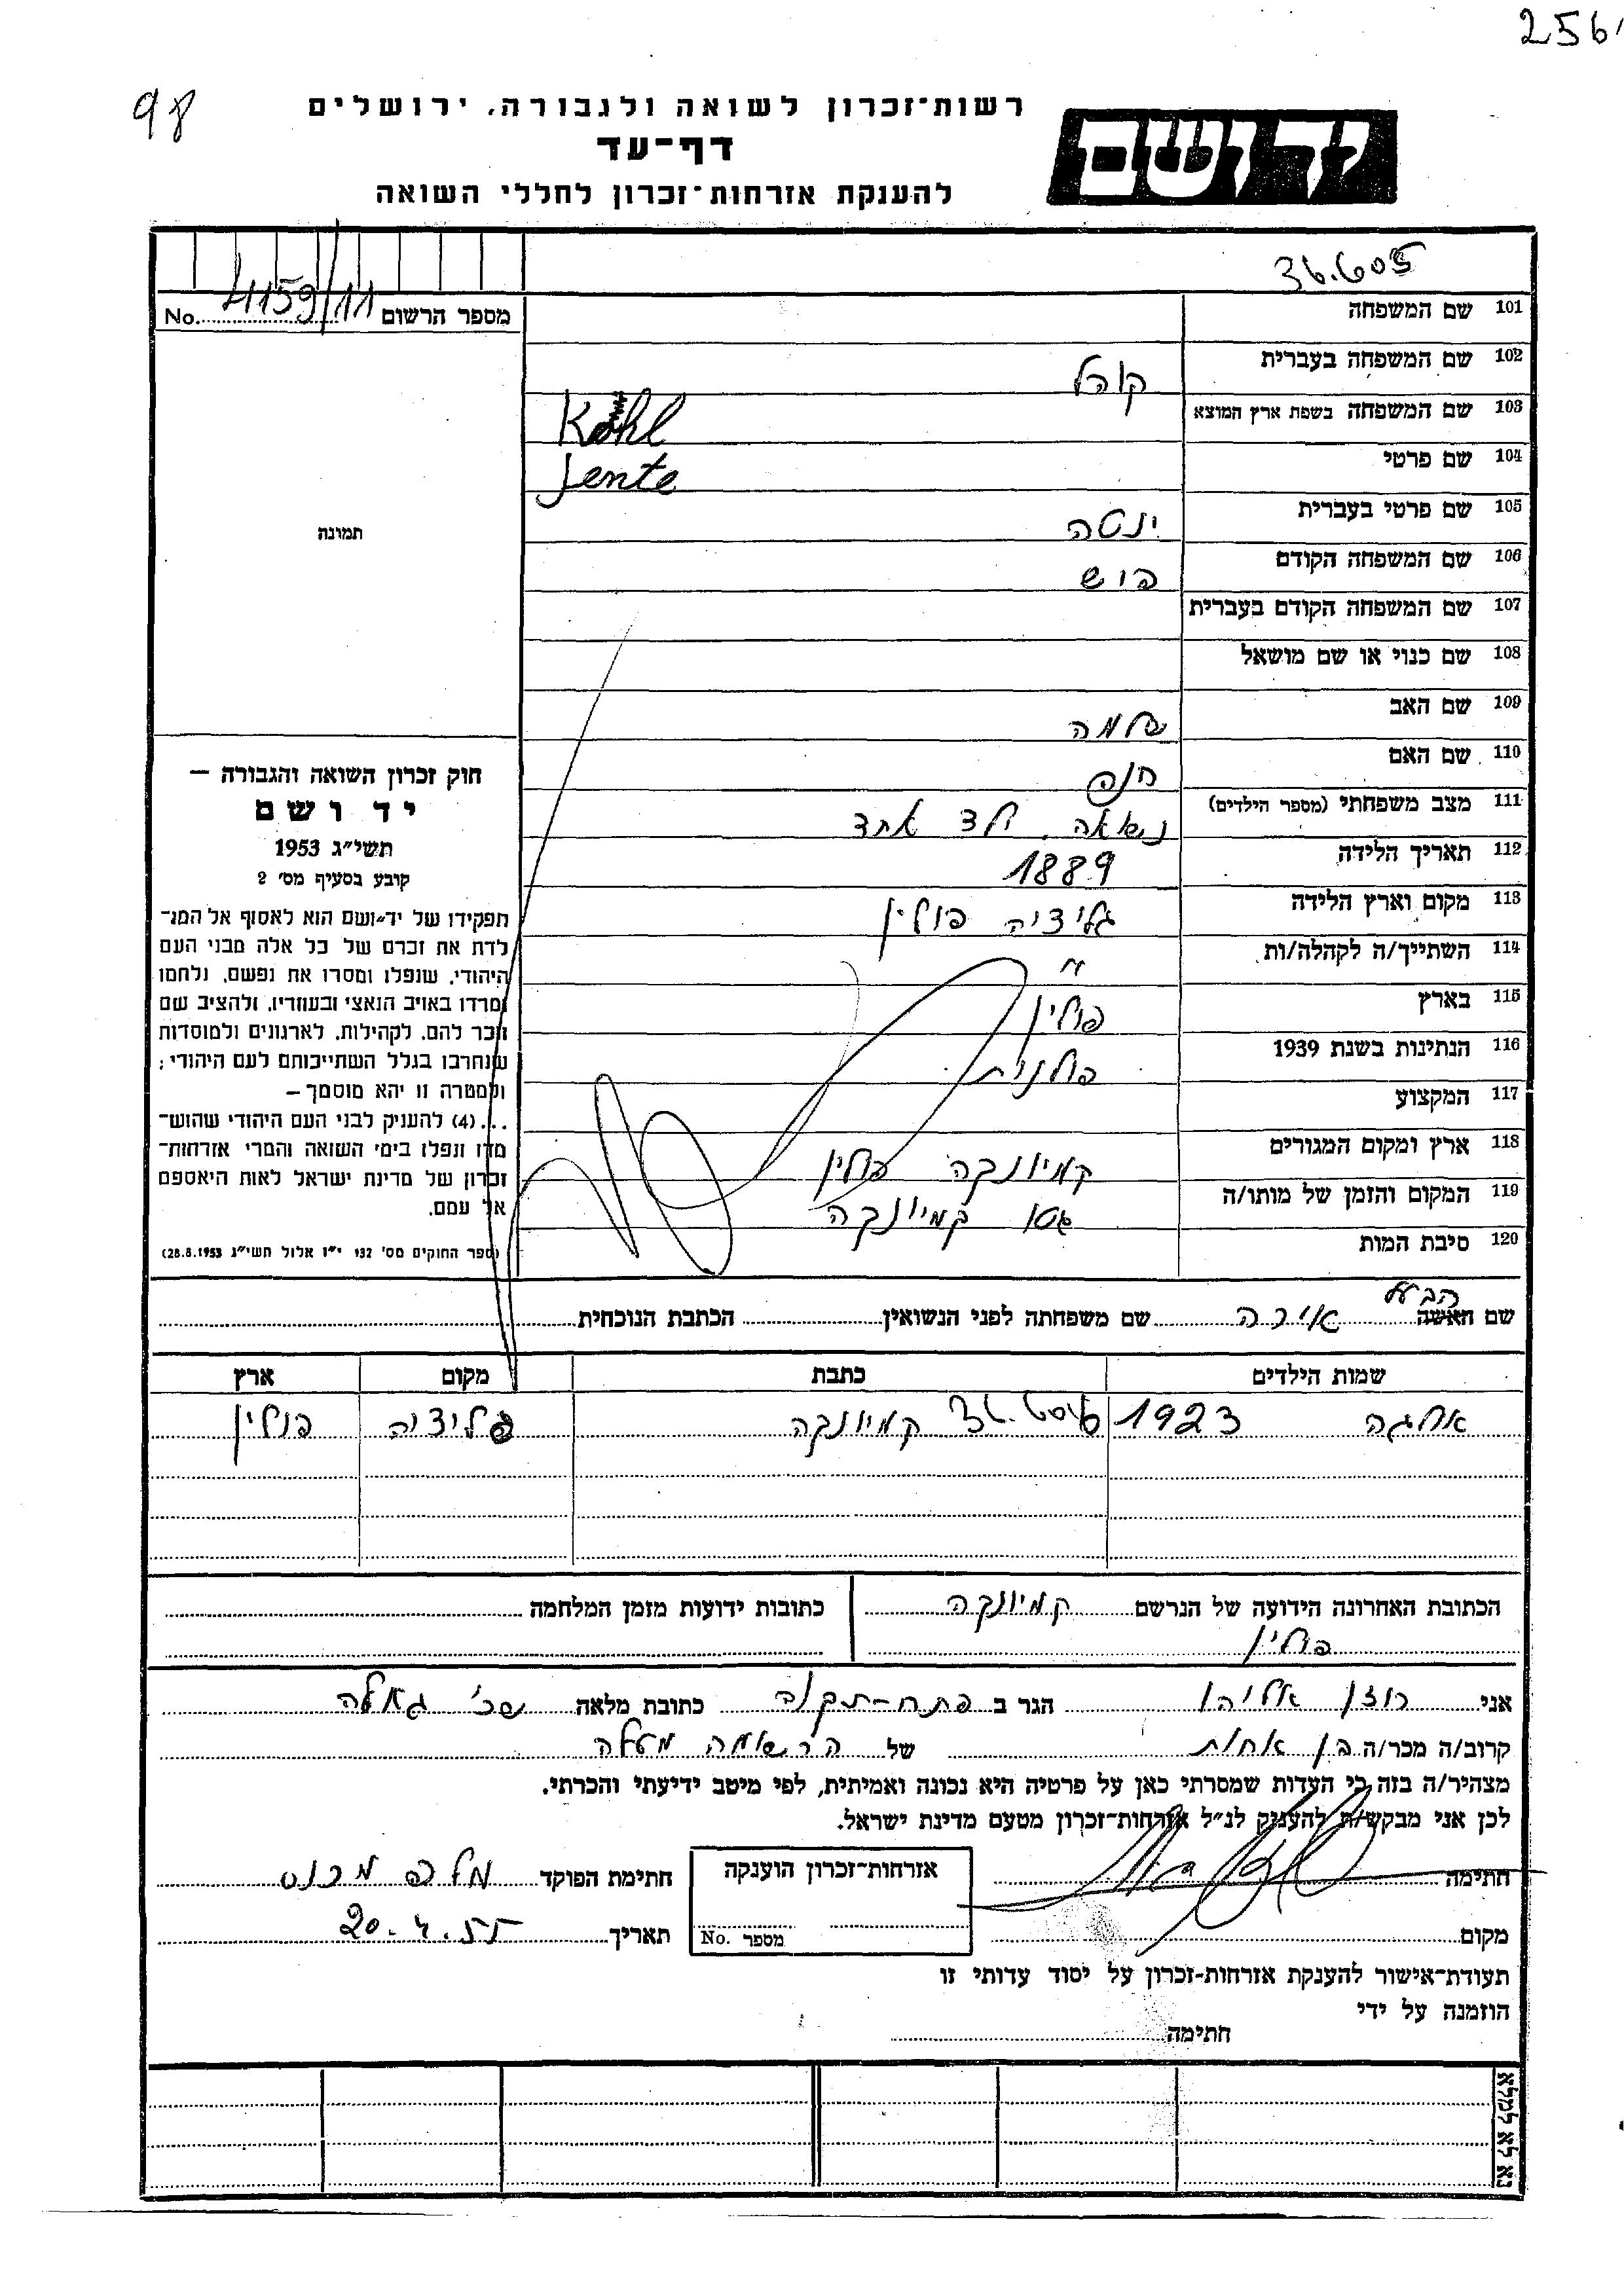 256
98
רשות־זכרון לשואה ולגבורה, ירושלים
דף־עד
להענקת אזרחות־זכרון לחללי השואה
ידושם
36.605
מספר הרשום 4159/11 No.
101 שם המשפחה
102 שם המשפחה בעברית קוהל
103 שם המשפחה בשפת ארץ המוצא Kohl
104 שם פרטי Jente
105 שם פרטי בעברית ינטה
106 שם המשפחה הקודם
107 שם המשפחה הקודם בעברית
108 שם כנוי או שם מושאל
109 שם האב שלמה
110 שם האם
111 מצב משפחתי (מספר הילדים) נשואה. ילד אחד
112 תאריך הלידה 1889
113 מקום וארץ הלידה גליציה פולין
114 השתייך/ה לקהלה/ות "
115 בארץ פולין
116 הנתינות בשנת 1939 פולנית
117 המקצוע
118 ארץ ומקום המגורים קמיונקה פולין
119 המקום והזמן של מותו/ה גטו קמיונקה
120 סיבת המות
תמונה
חוק זכרון השואה והגבורה —
יד ושם
תשי״ג 1953
קובע בסעיף מס׳ 2
תפקידו של יד־ושם הוא לאסוף אל המו־
לדת את זכרם של כל אלה מבני העם
היהודי, שנפלו ומסרו את נפשם, נלחמו
ומרדו באויב הנאצי ובעוזריו, ולהציב שם
וזכר להם, לקהילות, לארגונים ולמוסדות
שנחרבו בגלל השתייכותם לעם היהודי;
ולמטרה זו יהא מוסמך —
...(4) להעניק לבני העם היהודי שהוש־
מדו ונפלו בימי השואה והמרי אזרחות־
זכרון של מדינת ישראל לאות היאספם
אל עמם.
(ספר החוקים מס׳ 132 י״ז אלול תשי״ג 28.8.1953)
הבעל
שם האשה שם משפחתה לפני הנשואין הכתבת הנוכחית
שמות הילדים כתבת מקום ארץ
אלגה 1923 קמיונקה גליציה פולין
הכתובת האחרונה הידועה של הנרשם קמיונקה
פולין
כתובות ידועות מזמן המלחמה
אני רוזן אליהו הגר ב פתח-תקוה כתובת מלאה שכ׳ גאולה
קרוב/ה מכר/ה בן אחות של הרשומה מעלה
מצהיר/ה בזה כי העדות שמסרתי כאן על פרטיה היא נכונה ואמיתית, לפי מיטב ידיעתי והכרתי.
לכן אני מבקש/ת להעניק לנ״ל אזרחות־זכרון מטעם מדינת ישראל.
חתימה
אזרחות־זכרון הוענקה
חתימת הפוקד
מקום
מספר No.
תאריך 20.4.55
תעודת־אישור להענקת אזרחות-זכרון על יסוד עדותי זו
הוזמנה על ידי
חתימה
נא לא למלא